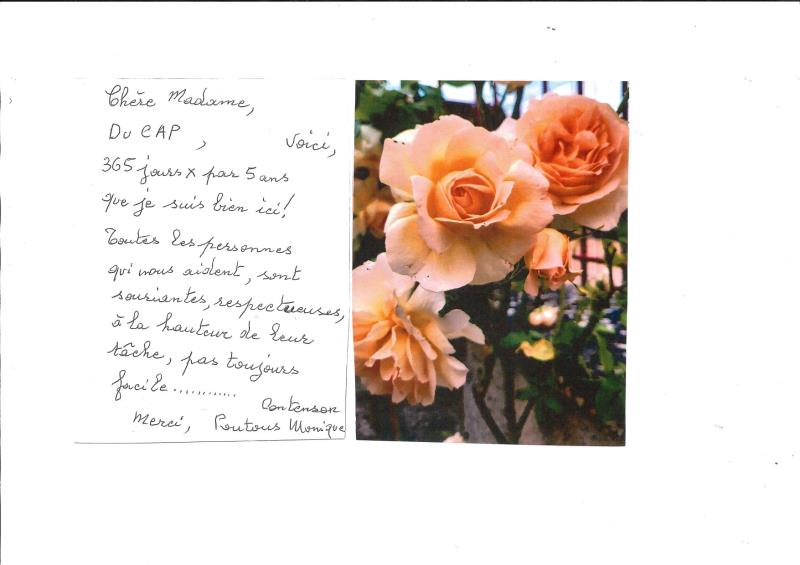 Chère Madame,
Du CAP, Voici,
365 jours x par 5 ans
que je suis bien ici!
Toutes les personnes
qui nous aident, sont
souriantes, respectueuses,
à la hauteur de leur
tâche, pas toujours
facile............
Contensor
Merci, Poutous Monique